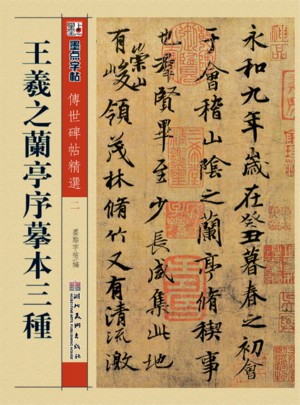 永和九年歲在癸丑暮春之初會
于會稽山陰之蘭亭脩稧事
也羣賢畢至少長咸集此地
有崇山峻領茂林脩竹又有清流激
墨点字帖
傳世碑帖精選
王羲之蘭亭序摹本三種
湖北美术出版社